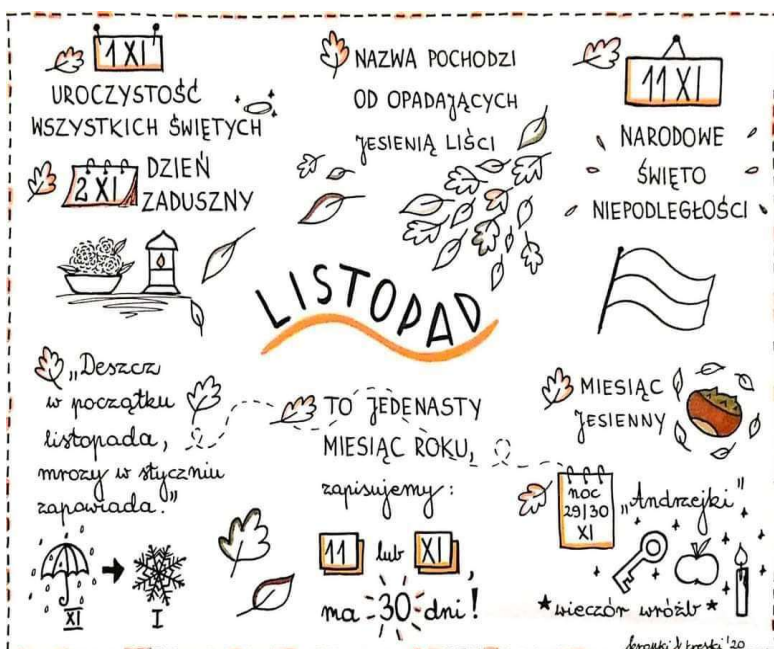 1 XI
UROCZYSTOŚĆ
WSZYSTKICH ŚWIĘTYCH
2 XI
DZIEŃ
ZADUSZNY
NAZWA POCHODZI
OD OPADAJĄCYCH
JESIENIĄ LIŚCI
11 XI
NARODOWE
ŚWIĘTO
NIEPODLEGŁOŚCI
LISTOPAD
„Deszcz
w początku
listopada,
mrozy w styczniu
zapowiada."
XI
I
TO JEDENASTY
MIESIĄC ROKU,
zapisujemy:
11 lub XI,
ma 30 dni!
MIESIĄC
JESIENNY
noc
29/30
XI
„Andrzejki"
*wieczór wróżb*
kropki & kreski '20